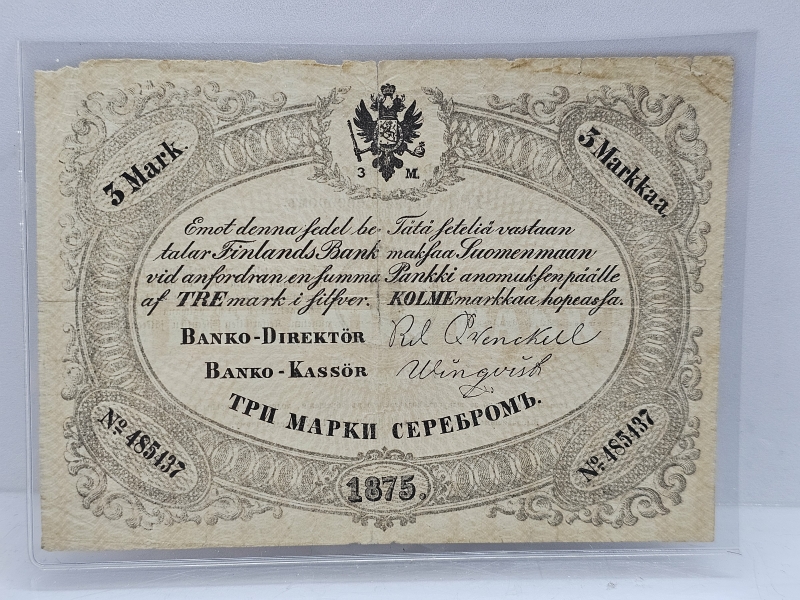 3 Mark.
3 Markkaa
3 M.
Emot denna sedel be-
talar Finlands Bank
vid anfordran, en summa
af TRE mark i silfver.
Tätä seteliä vastaan
maksaa Suomenmaan
Pankki anomuksen päälle
KOLME markkaa hopeassa.
BANKO-DIREKTÖR
BANKO-KASSÖR
Wingvist
ТРИ МАРКИ СЕРЕБРОМЪ.
No. 485437
No. 485437
1875.